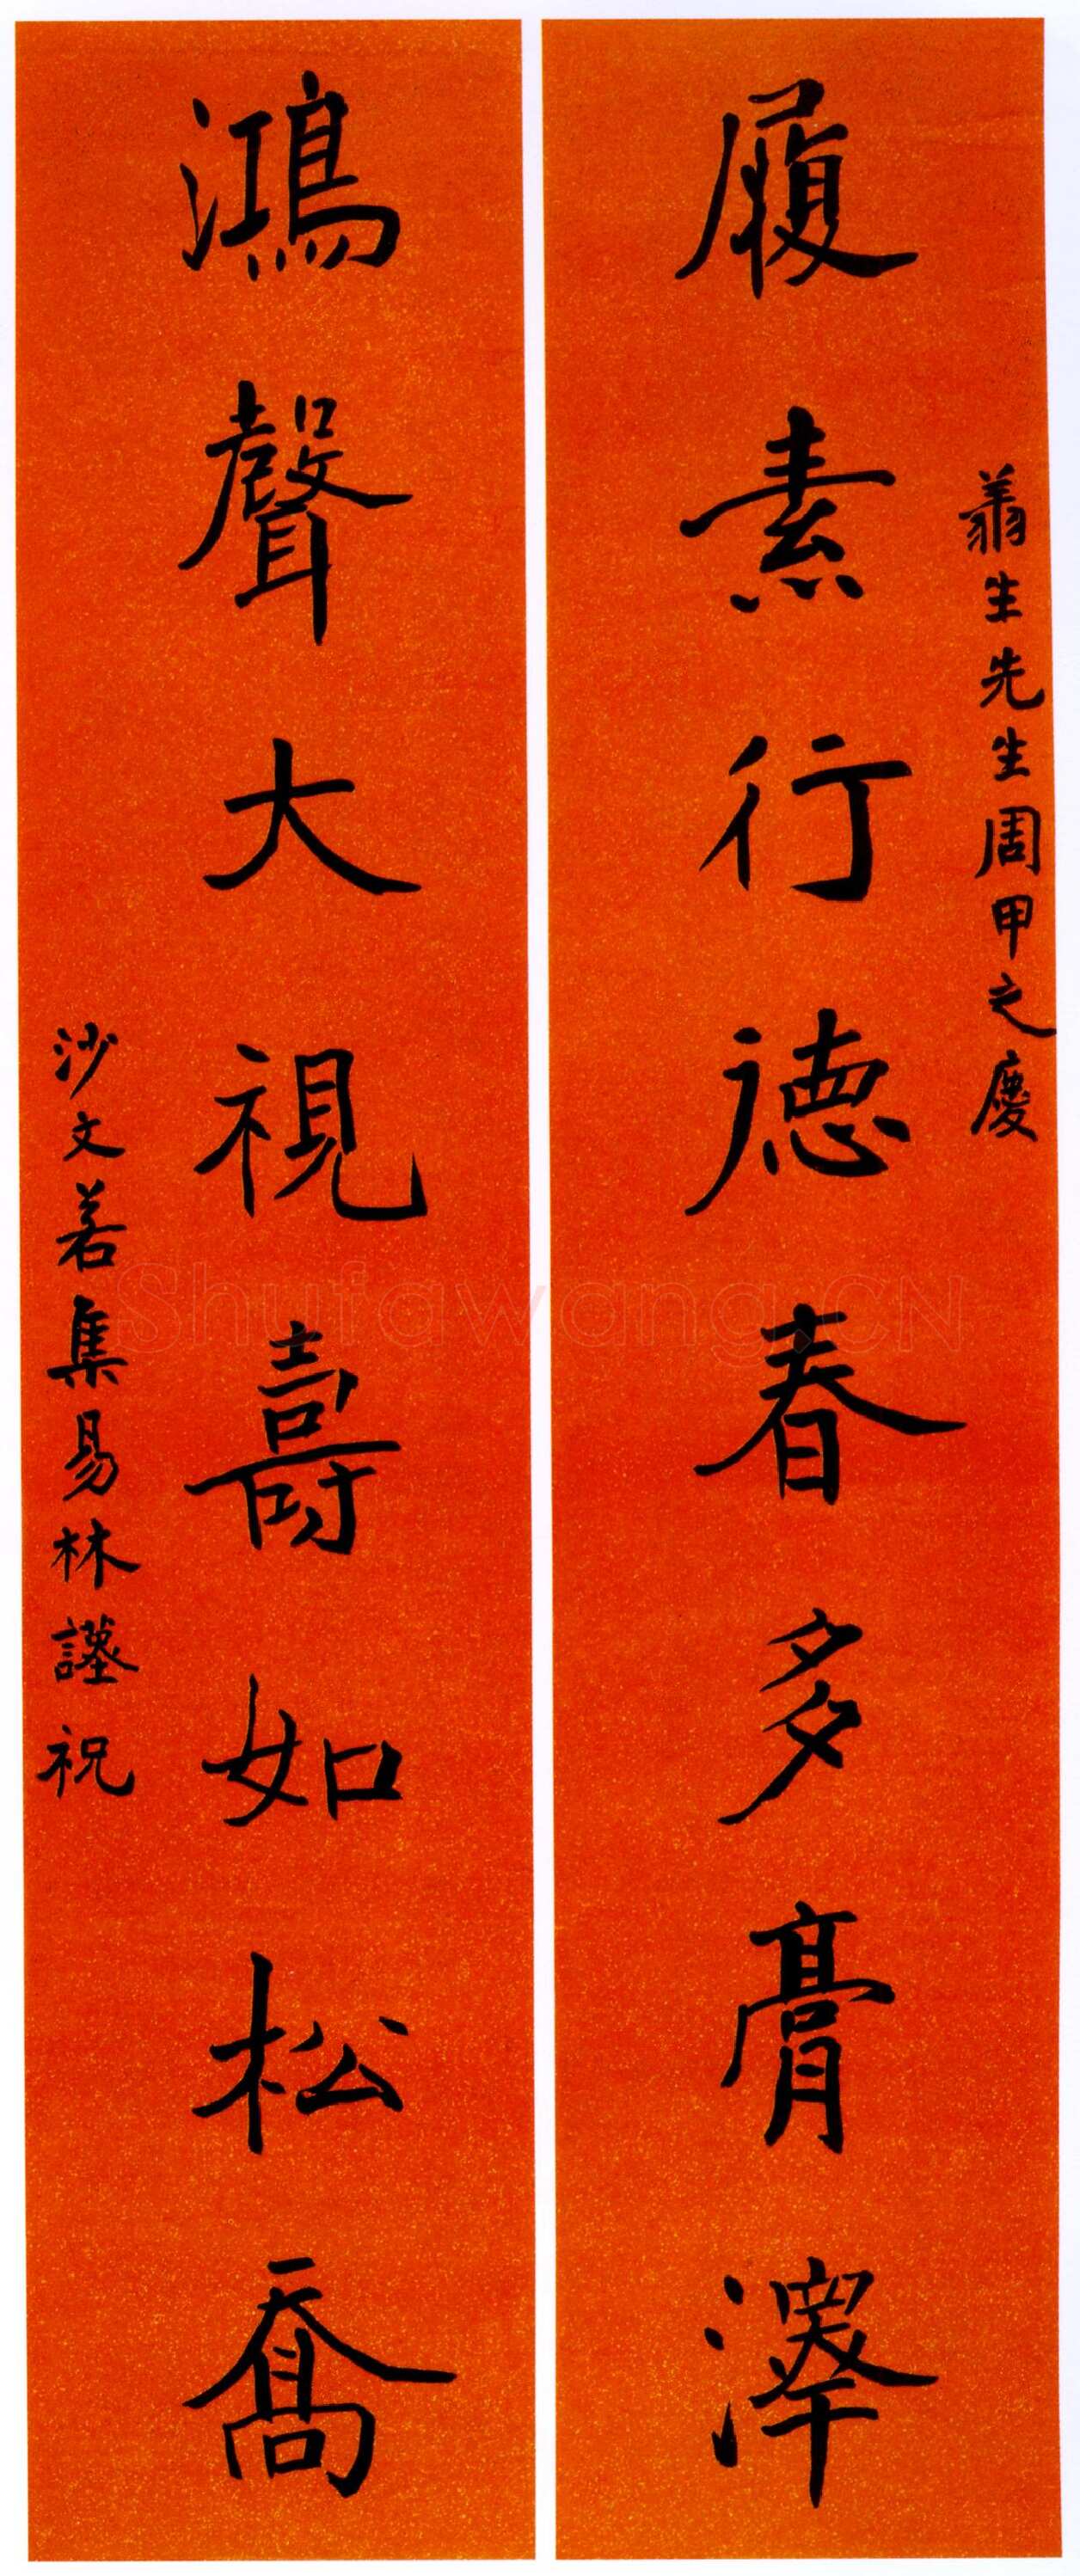 生先生周甲之慶
履素行德春多膏澤
鴻聲大視壽如松喬
沙文若集易林謹祝
Shufawang.CN